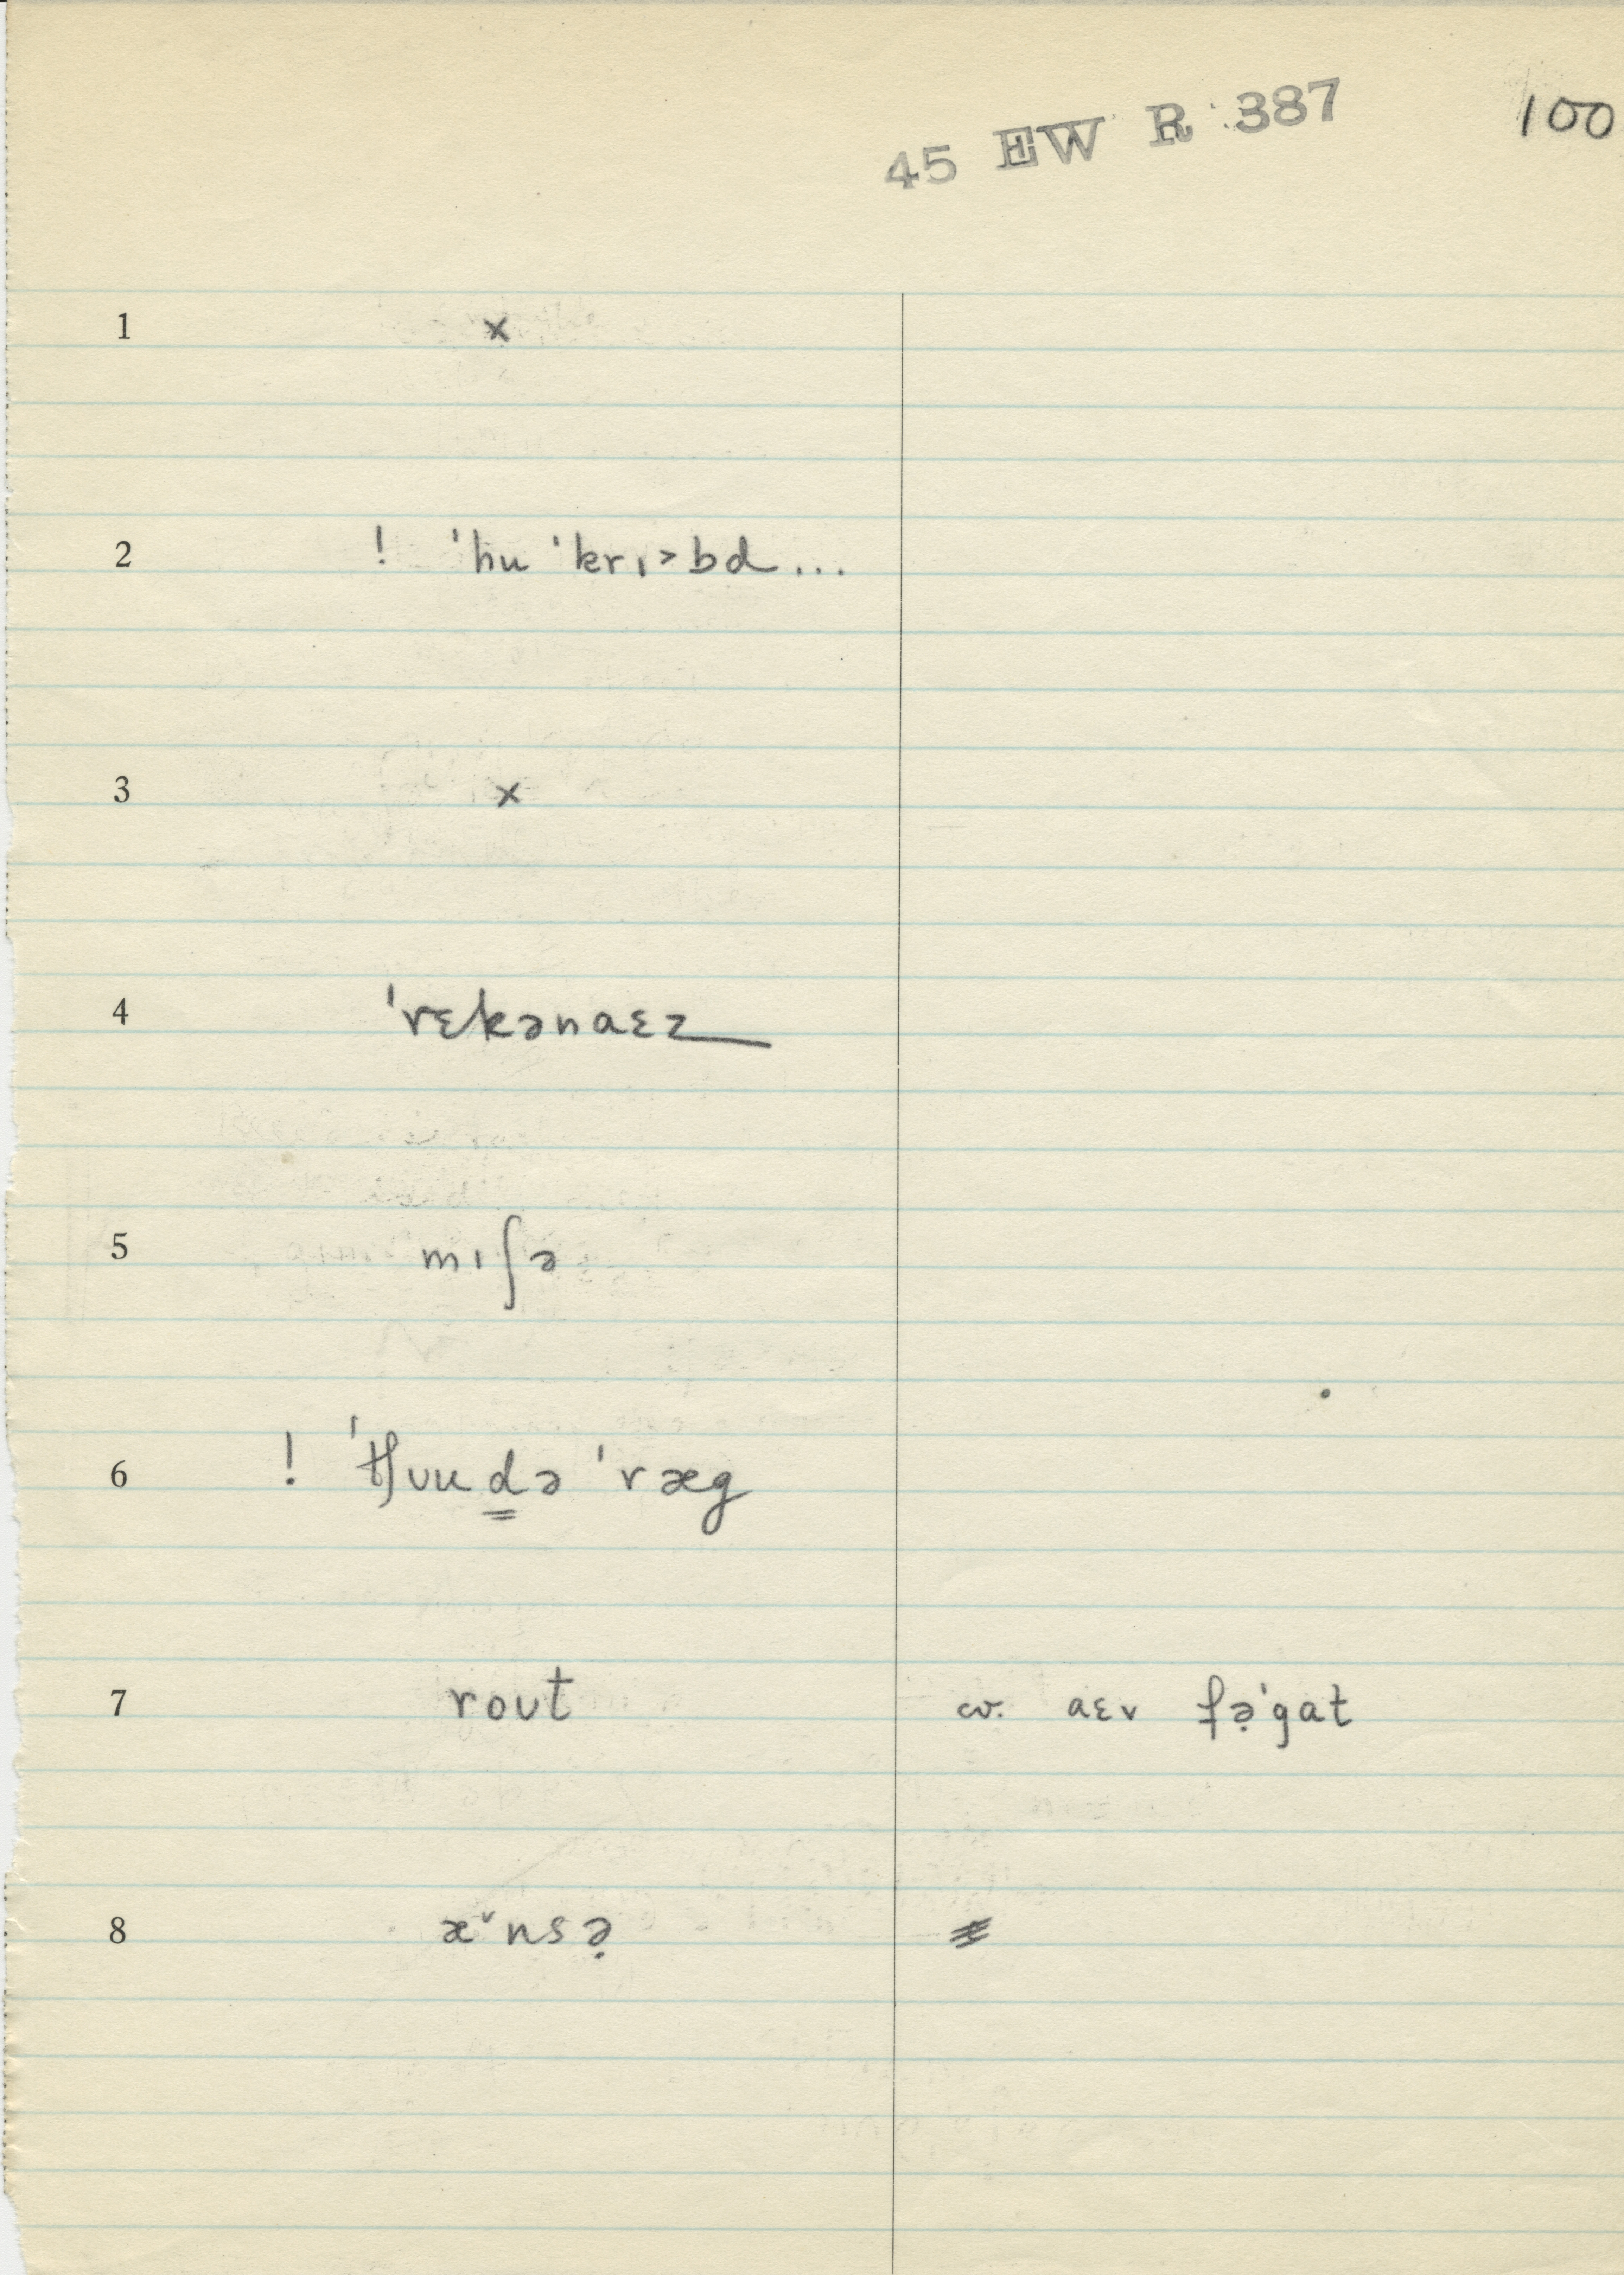 45 EW R 387 100
1 x
2 ! ˈhu ˈkrɪ˃bd...
3 x
4 ˈrɛkənaɛz
5 mɪʃə
6 ! ˈtʃʊud̳ə ˈræg
7 roʊt cv. aɛv fə̣ˈgat
8 æ˅nsə̣